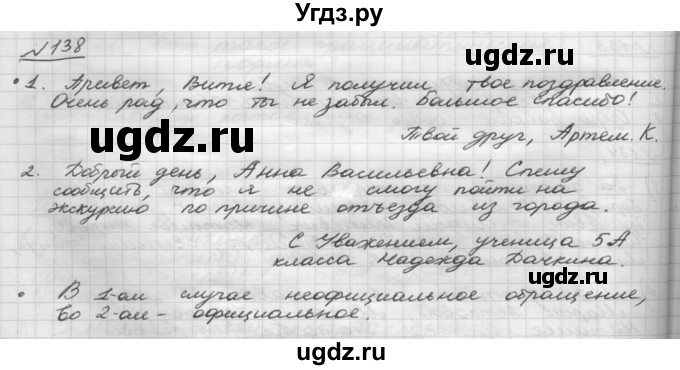 Угдз.ру
№138
• 1. Привет, Витя! Я получил твое поздравление.
Очень рад, что ты не забыл. Большое спасибо!
Твой друг, Артем. К.
2. Добрый день, Анна Васильевна! Спешу
сообщить, что я не смогу пойти на
экскурсию по причине отъезда из города.
С Уважением, ученица 5А
класса Надежда Дачкина.
• В 1-ом случае неофициальное обращение,
во 2-ом - официальное.
ugdz.ru
ugdz.ru
ugdz.ru
ugdz.ru
ugdz.ru
ugdz.ru